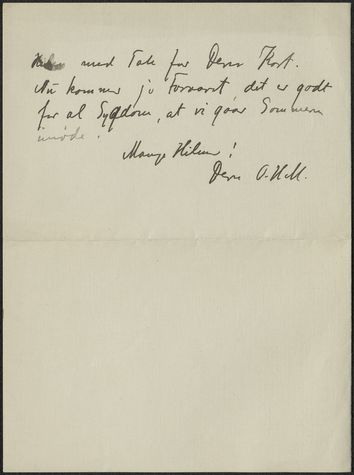 med Tak for Deres Kort.
Nu kommer jo Foraaret, det er godt
for al Sygdom, at vi gaar Sommeren
imøde.
Mange Hilsner!
Deres O.H.M.